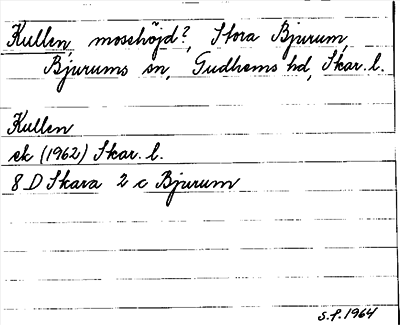 Kullen, mosshöjd?, Stora Bjurum,
Bjurums sn, Gudhems hd, Skar. l.
Kullen
ek (1962) Skar. l.
8 D Skara 2 c Bjurum
S.F. 1964